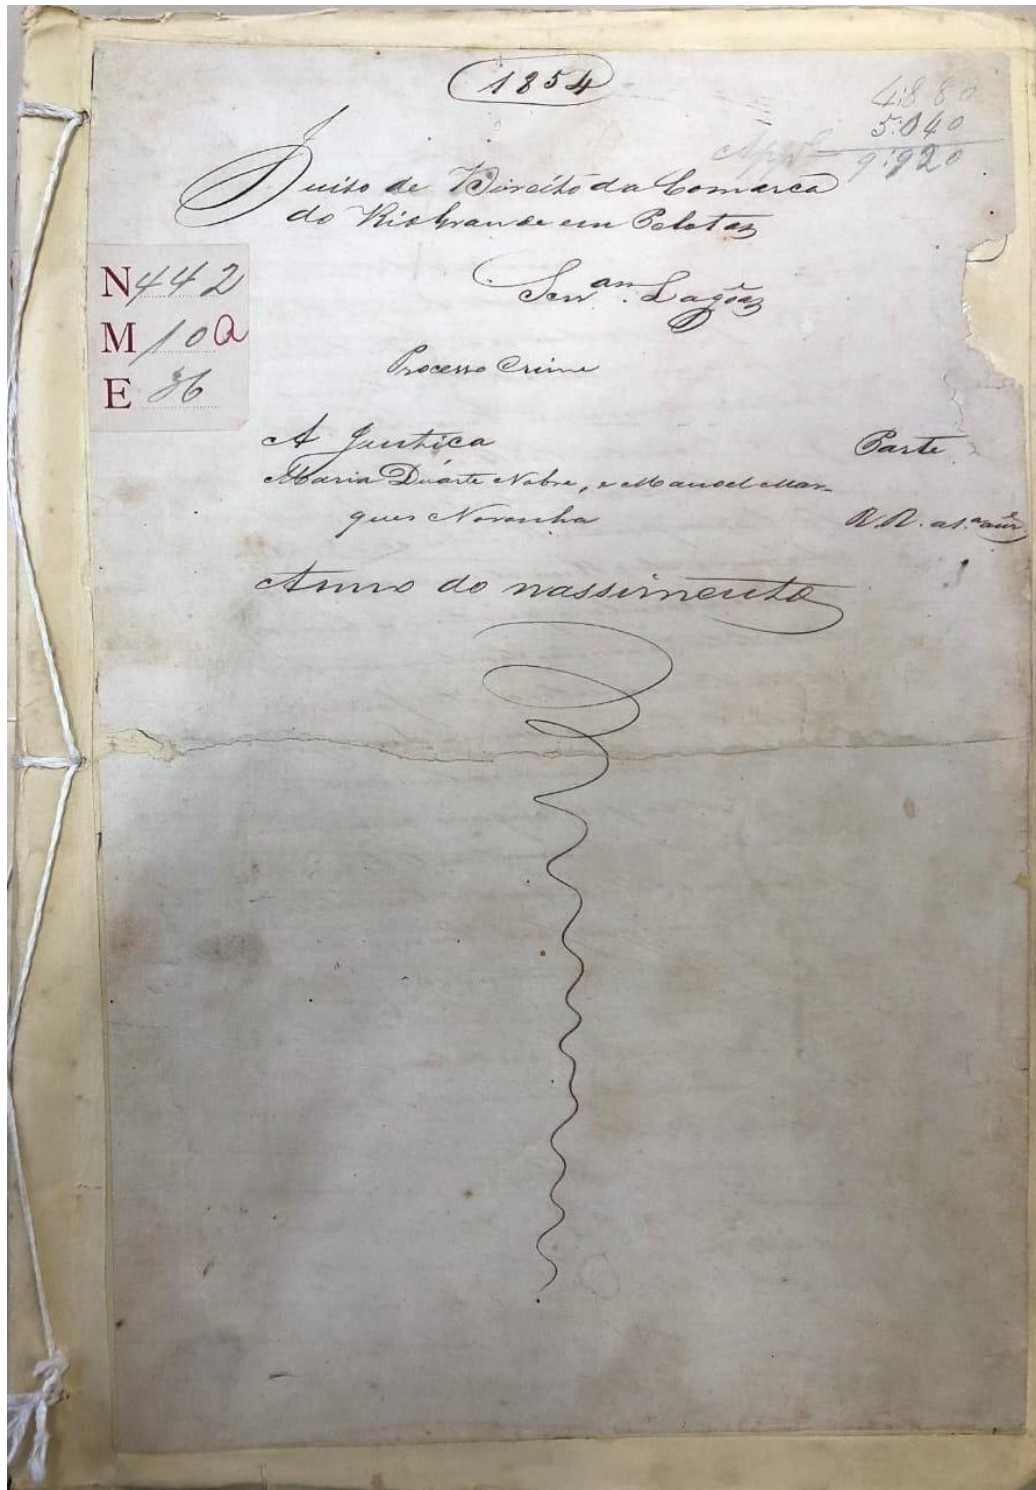 1854
4:880
5:040
9:920
Juiso de Direito da Comarca
do Rio Grande em Pelotas
N 442
M 10 a
E 36
Serv.am Lagôas
Processo Crime
A Justica Parte
Maria Duarte Nobre, e Manoel Mar-
ques Noronha R.R.
Anno do nassimento